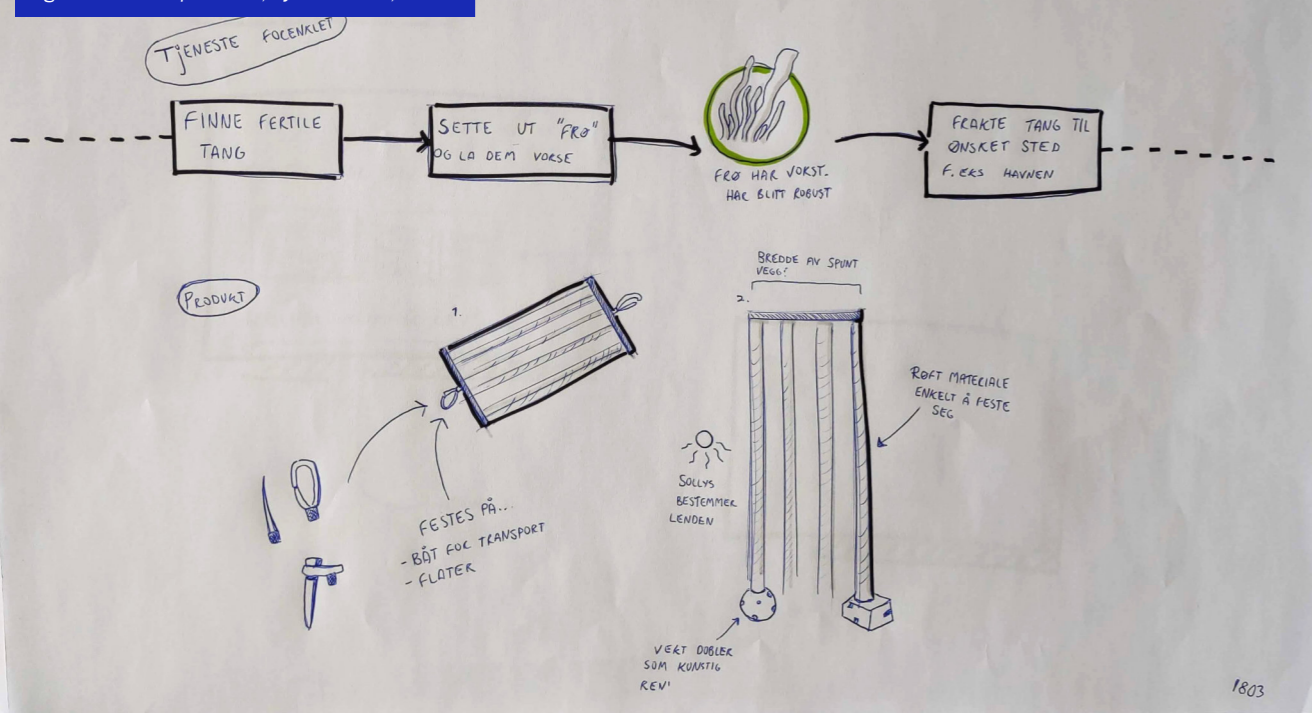 TJENESTE FORENKLET
FINNE FERTILE
TANG
SETTE UT "FRØ"
OG LA DEM VOKSE
FRØ HAR VOKST.
HAR BLITT ROBUST
FRAKTE TANG TIL
ØNSKET STED
F. EKS HAVNEN
PRODUKT
1.
FESTES PÅ...
- BÅT FOR TRANSPORT
- FLATER
BREDDE AV SPUNT
VEGG?
2.
RØFT MATERIALE
ENKELT Å FESTE
SEG
SOLLYS
BESTEMMER
LENDEN
VEKT DOBLER
SOM KUNSTIG
REV
1803